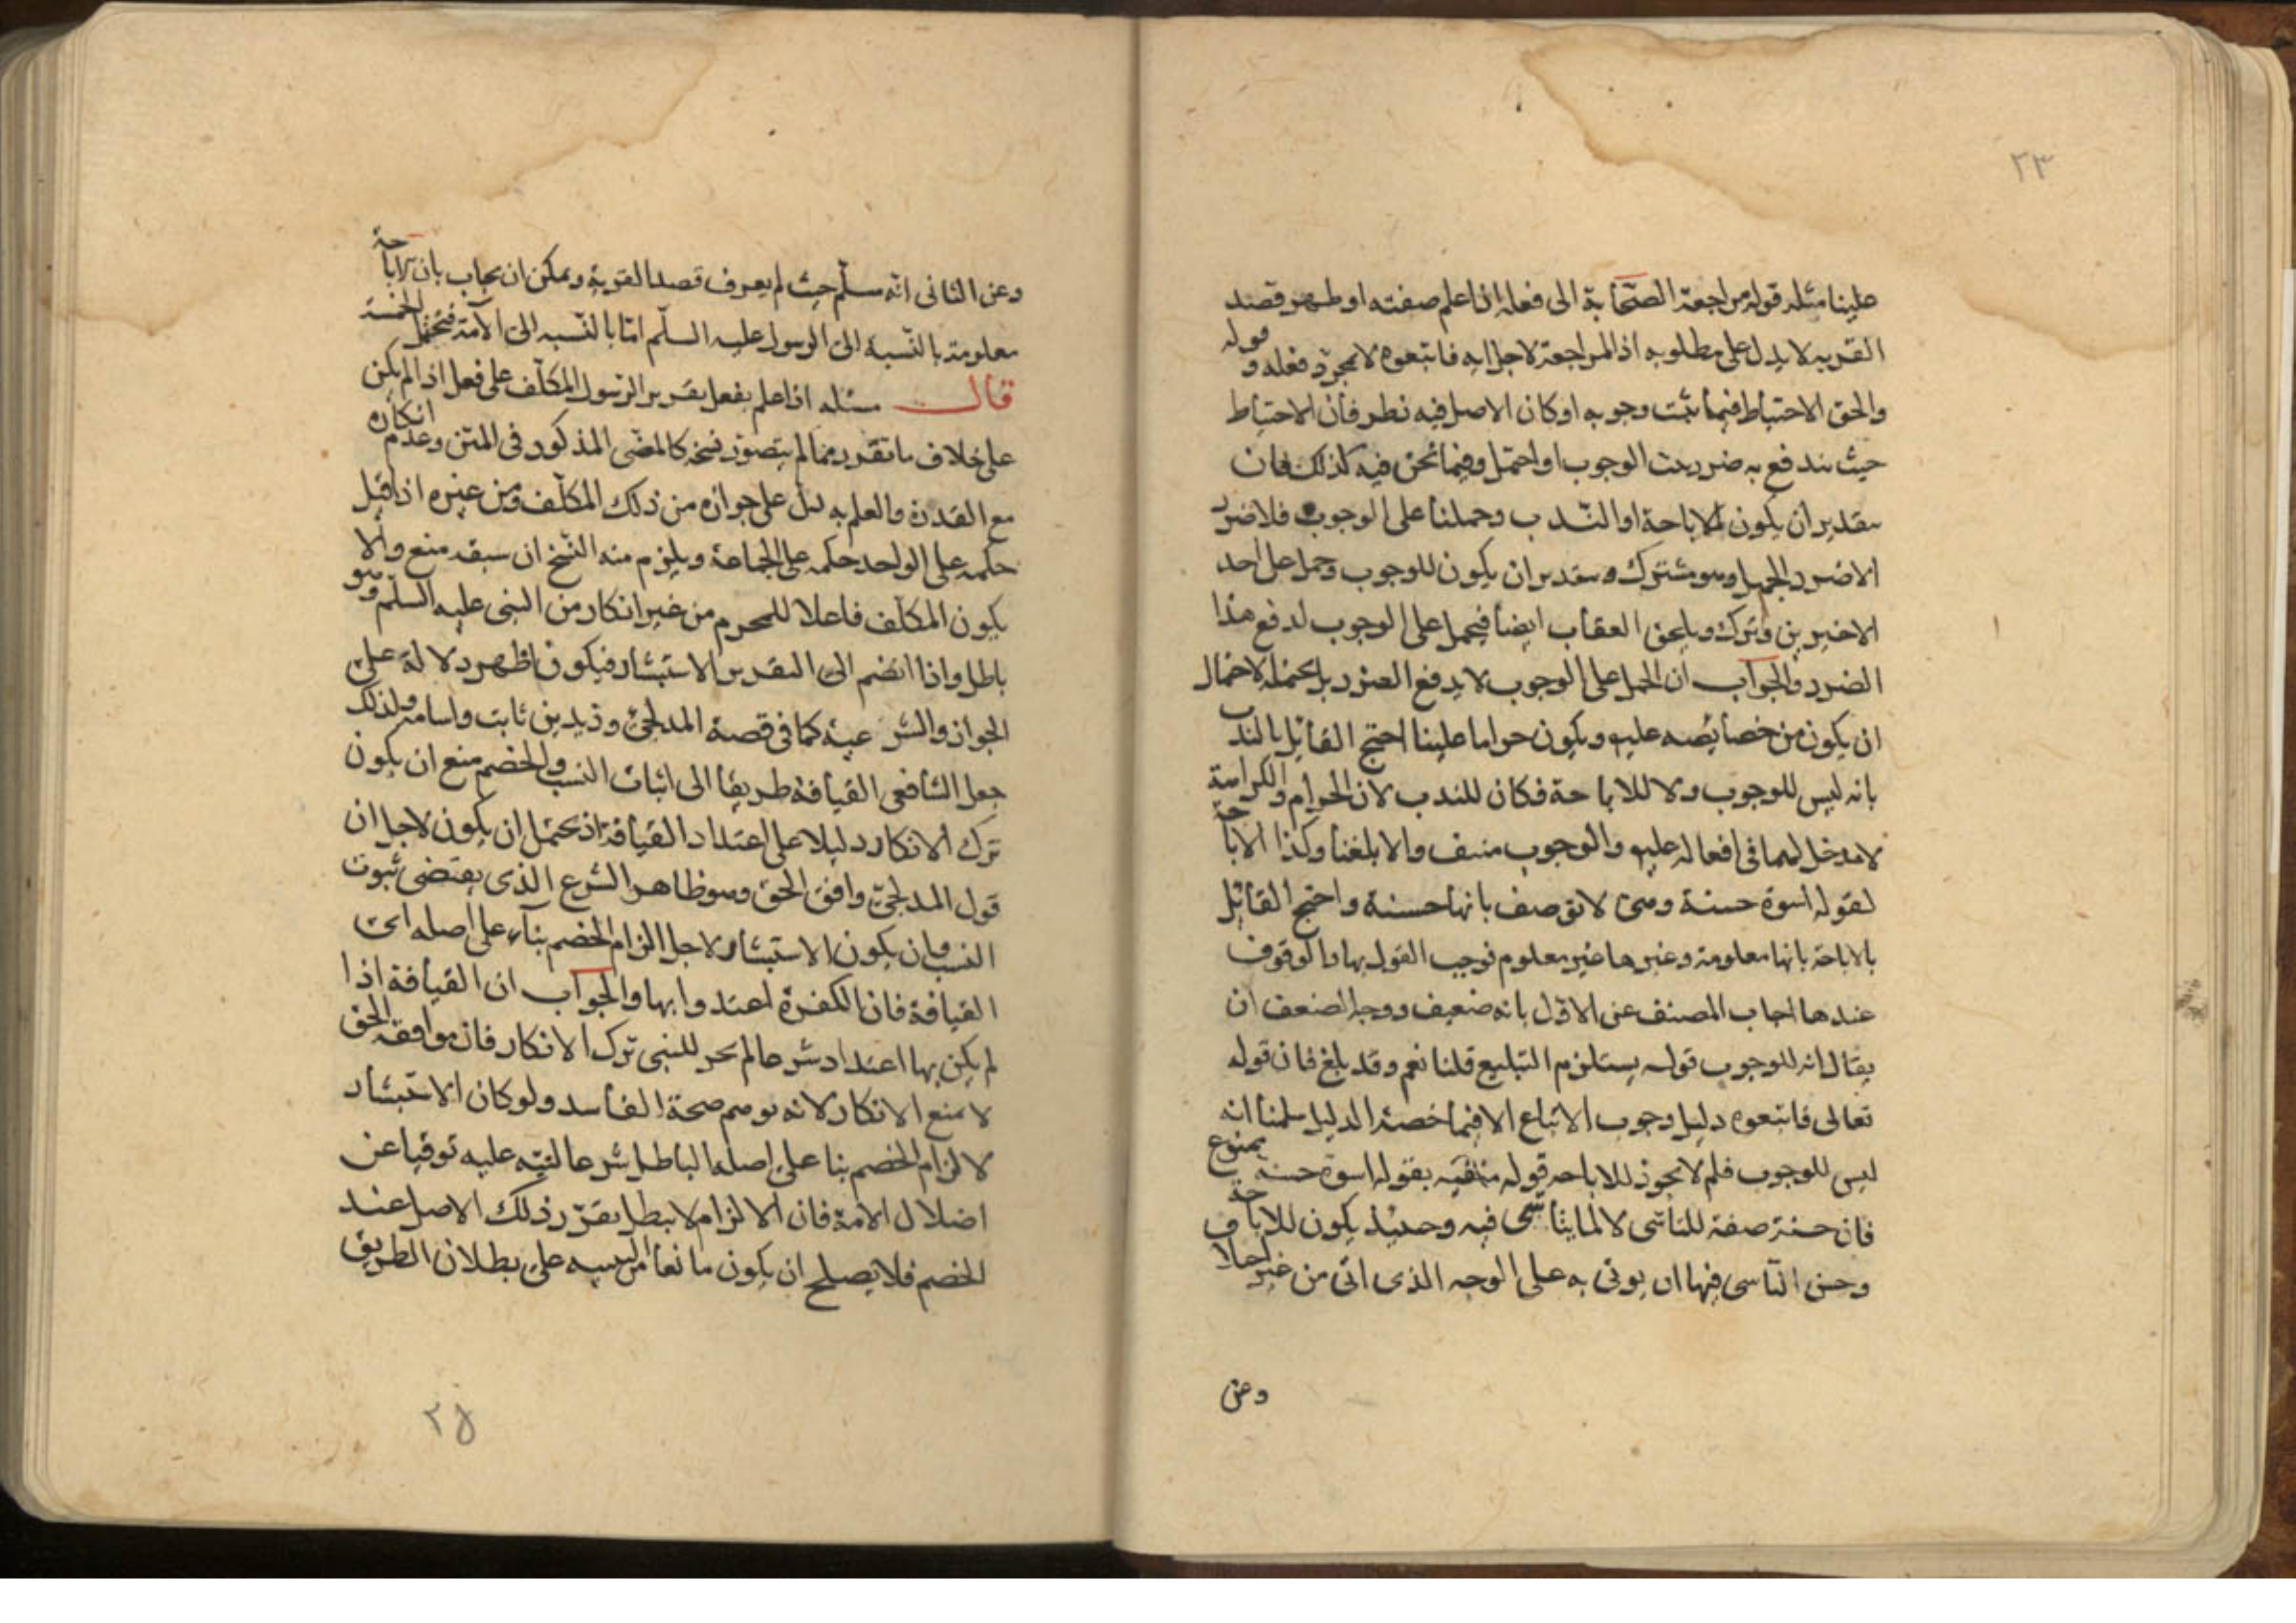 ٢٣
علينا مثله قوله مراجعة الصحابة الى فعله اذا علم صفته او ظهر قصد
القربه لا يدل على مطلوبه اذ المراجعة لاجل ايه فاتبعوه لا بمجرد فعله وقوله
والحق الاحتياط فيما ثبت وجوبه او كان الاصل فيه نظر فان الاحتياط
حيث يندفع به ضرر الوجوب او احتمل وفيما نحن فيه كذلك فان
بتقدير ان يكون للاباحة او الندب وحملنا على الوجوب فلا ضرر
الا ضرر الجهل وهو مشترك وبتقدير ان يكون للوجوب وحمل على احد
الاخيرين وترك ويلحق العقاب ايضا فيحمل على الوجوب لدفع هذا
الضرر والجواب ان الحمل على الوجوب لا يدفع الضرر بل يحتمله لاحتمال
ان يكون من خصايصه عليه ويكون حراما علينا احتج القايل بالندب
بانه ليس للوجوب ولا للاباحة فكان للندب لان الحرام والكراهة
لا مدخل لهما فى افعاله عليه والوجوب منتف والا بلغنا وكذا الاباحة
لقوله اسوة حسنة وهى لا توصف بانها حسنة واحتج القايل
بالاباحة بانها معلومة وغيرها غير معلوم فوجب القول بها والوقوف
عندها اجاب المصنف عن الاول بانه ضعيف ووجه الضعف ان
يقال انه للوجوب قوله يستلزم التبليغ قلنا نعم وقد بلغ فان قوله
تعالى فاتبعوه دليل وجوب الاتباع الا فيما خصه الدليل سلمنا انه
ليس للوجوب فلم لا يجوز للاباحه قوله منافيه بقوله اسوة حسنة ممنوع
فان حسنة صفة للتأسى لا لما يتأسى فيه وحينئذ يكون للاباحة
وحسن التأسى فيها ان يوتى به على الوجه الذى اتى من غير
وعن
وعن الثانى انه سلم حيث لم يعرف قصد القربة ويمكن ان يجاب بان الاباحة
معلومة بالنسبة الى الرسول عليه السلم اما بالنسبه الى الامة فتحتمل الخمسة
قال مسئله اذا علم بفعل تقرير الرسول المكلف على فعل اذا لم يكن
على خلاف ما تقرر مما لم يتصور نسخه كالمضى المذكور فى المتن وعدم انكاره
مع القدرة والعلم به دل على جوازه من ذلك المكلف ومن غيره اذا قيل
حكمه على الواحد حكمه على الجماعة ويلزم منه النسخ ان سبقه منع والا
يكون المكلف فاعلا للمحرم من غير انكار من النبى عليه السلم وهو
باطل واذا انضم الى التقرير الاستبشار فيكون اظهر دلالة على
الجواز والشرعية كما فى قصة المدلجى وزيد بن ثابت واسامه ولذلك
جعل الشافعى القيافة طريقا الى اثبات النسب والخصم منع ان يكون
ترك الانكار دليلا على اعتداد القيافة اذ يحتمل ان يكون لاجل ان
قول المدلجى وافق الحق وهو ظاهر الشرع الذى يقتضى ثبوت
النسب وان يكون الاستبشار لاجل الزام الخصم بناء على اصله اى
القيافة فان الكفرة اعتدوا بها والجواب ان القيافة اذا
لم يكن بها اعتداد شرعا لم يجز للنبى ترك الانكار فان موافقه الحق
لا تمنع الانكار لانه يوهم صحة الفاسد ولو كان الاستبشار
لالزام الخصم بنا على اصله الباطل شرعا لنبه عليه توقيا عن
اضلال الامة فان الالزام لا يبطل بتقرر ذلك الاصل عند
الخصم فلا يصلح ان يكون مانعا من التنبيه على بطلان الطريق
٢٥